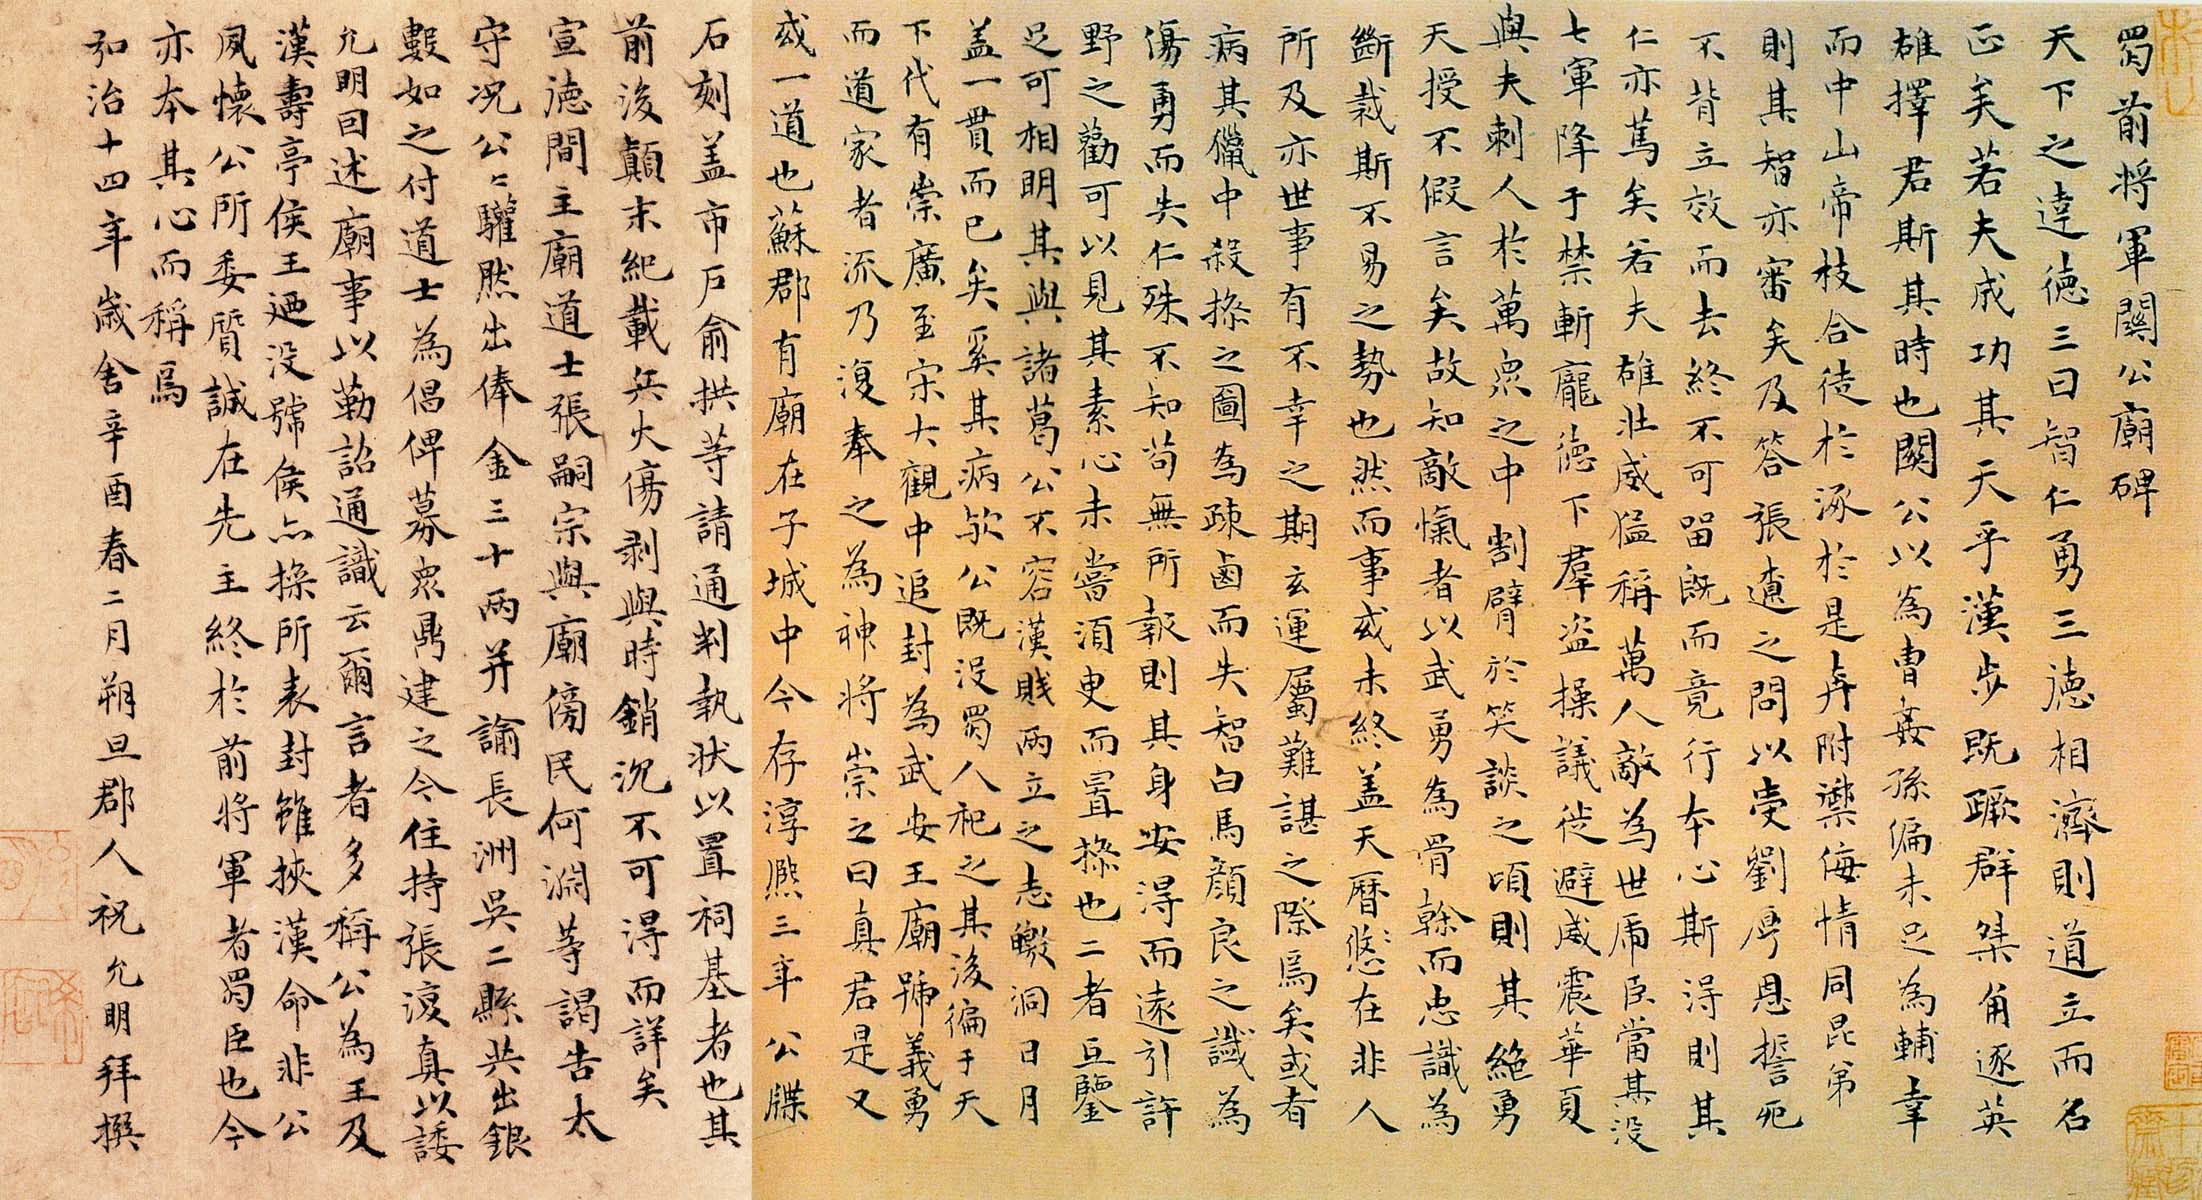 蜀前將軍關公廟碑
天下之達德三曰智仁勇三德相濟則道立而名
正矣若夫成功其天乎漢步既蹶群桀角逐英
雄擇君斯其時也關公以為曹姦孫偏未足為輔幸
而中山帝枝合徒於涿於是奔附禦侮情同昆弟
則其智亦審矣及答張遼之問以受劉厚恩誓死
不背立效而去終不可留既而竟行本心斯得則其
仁亦篤矣若夫雄壯威猛稱萬人敵為世虎臣當其沒
七軍降于禁斬龐德下羣盜操議徙避威震華夏
與夫刺人於萬眾之中割臂於笑談之頃則其絕勇
天授不假言矣故知敵愾者以武勇為骨榦而忠識為
斷裁斯不易之勢也然而事或未終蓋天曆悠〻在非人
所及亦世事有不幸之期玄運屬難諶之際焉矣或者
病其獵中殺操之圖為疎鹵而失智白馬顏良之讖為
傷勇而失仁殊不知苟無所報則其身安得而遠引許
野之勸可以見其素心未嘗須臾而置操也二者互鑒
足可相明其與諸葛公不容漢賊兩立之志皦洞日月
蓋一貫而已矣奚其病歟公既沒蜀人祀之其後徧于天
下代有崇廣至宋大觀中追封為武安王廟號義勇
而道家者流乃復奉之為神將崇之曰真君是又
或一道也蘇郡有廟在子城中今存淳熙三年公牒
石刻蓋市戶俞拱等請通判執狀以置祠基者也其
前後顛末紀載兵火傷剥與時銷沉不可得而詳矣
宣德間主廟道士張嗣宗與廟傍民何淵等謁告太
守況公〻驩然出俸金三十兩并諭長洲吳二縣共出銀
數如之付道士為倡俾募眾鼎建之今住持張復真以諉
允明回述廟事以勒詔通識云爾言者多稱公為王及
漢壽亭侯王迺沒號侯亦操所表封雖挾漢命非公
夙懷公所委質誠在先主終於前將軍者蜀臣也今
亦本其心而稱焉
弘治十四年歲舍辛酉春二月朔旦郡人祝允明拜撰